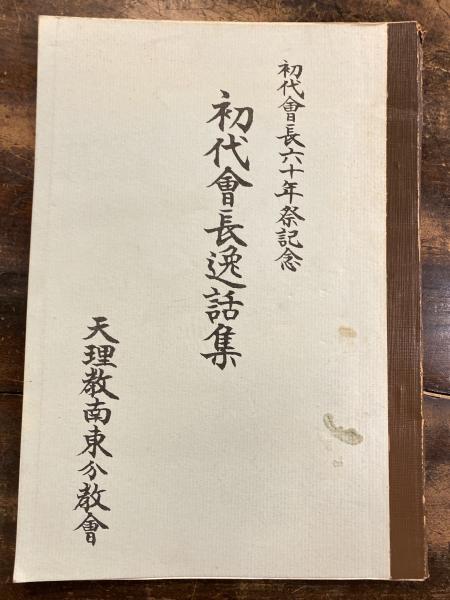 初代會長六十年祭記念
初代會長逸話集
天理教南東分教會